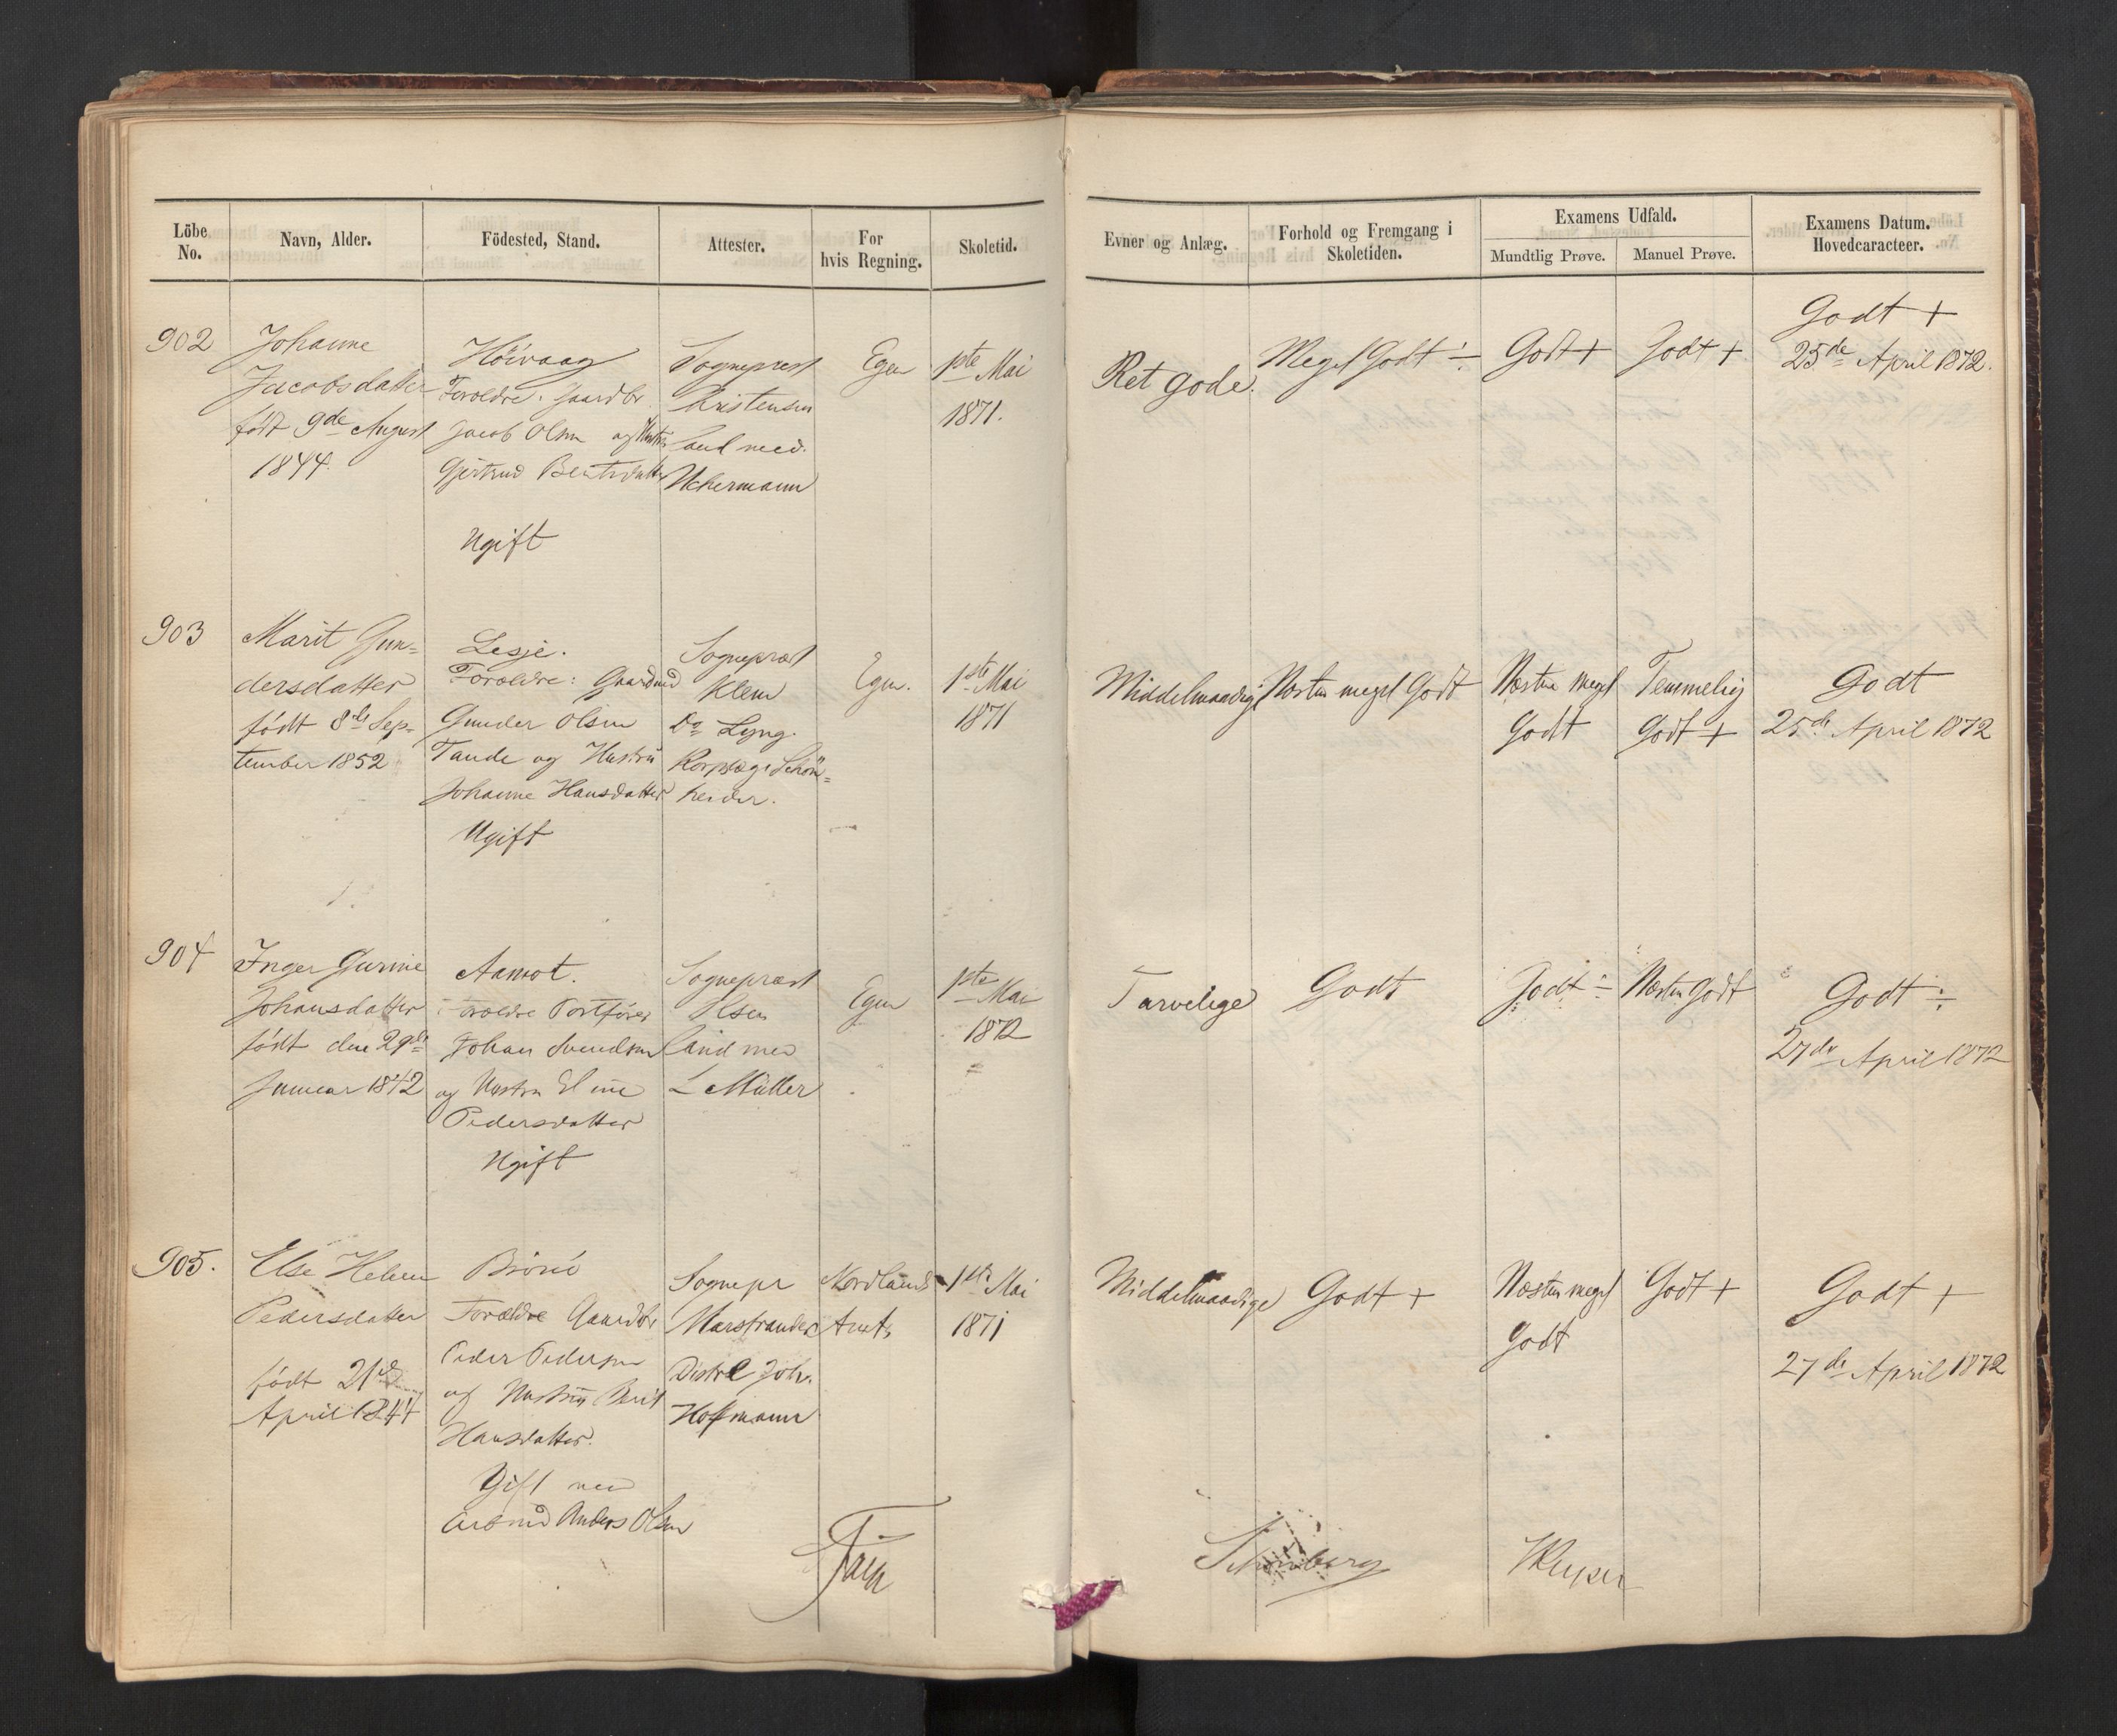 Löbe No.
Navn, Alder.
Födested, Stand.
Attester.
For hvis Regning.
Skoletid.
Evner og Anlæg.
Forhold og Fremgang i Skoletiden.
Examens Udfald.
Mundtlig Prøve.
Manuel Prøve.
Examens Datum.
Hovedcaracteer.
902
Johanne
Jacobsdatter
født 9de August
1844.
Höivaag
Forældre: Gaardbr.
Jacob Olsen og Hustru
Gjertrud Bentsdatter
Ugift
Sognepræst
Kristensen
Cand med.
Uchermann
Egen
1ste Mai
1871.
Ret gode.
Meget Godt ÷
Godt +
Godt +
Godt +
25de April 1872.
903
Marit Gun=
dersdatter
født 8de Sep=
tember 1852
Lesje.
Forældre: Gaardmd
Gunder Olsen
Tande og Hustru
Johanne Hansdatter
Ugift
Sognepræst
Klem
Do Lyng.
Korpslæge Schön=
heider.
Egen.
1ste Mai
1871
Middelmaadige
Næsten meget Godt
Næsten meget
Godt
Temmelig
Godt +
Godt
25de April 1872
904
Inger Gurine
Johansdatter
født den 29de
Januar 1842
Aamot.
Forældre
Johan Svendsen
og Hustru Eline
Pedersdatter
Ugift
Sognepræst
Olsen
Cand med
L Müller
Egen
1ste Mai
1872
Tarvelige
Godt
Godt ÷
Næsten Godt
Godt ÷
27de April 1872
905.
Else Helene
Pedersdatter
født 21de
April 1844
Forældre Gaardbr
Peder Pedersen
og Hustru Berit
Hansdatter.
Gift med
Arbmd Anders Olsen
Sognepr
Marstrander
Distrl Joh.
Hoffmann
Nordlands
Amt
1ste Mai
1871
Middelmaadige
Godt +
Næsten meget
Godt
Godt +
Godt +
27de April 1872
Faye
Schönberg